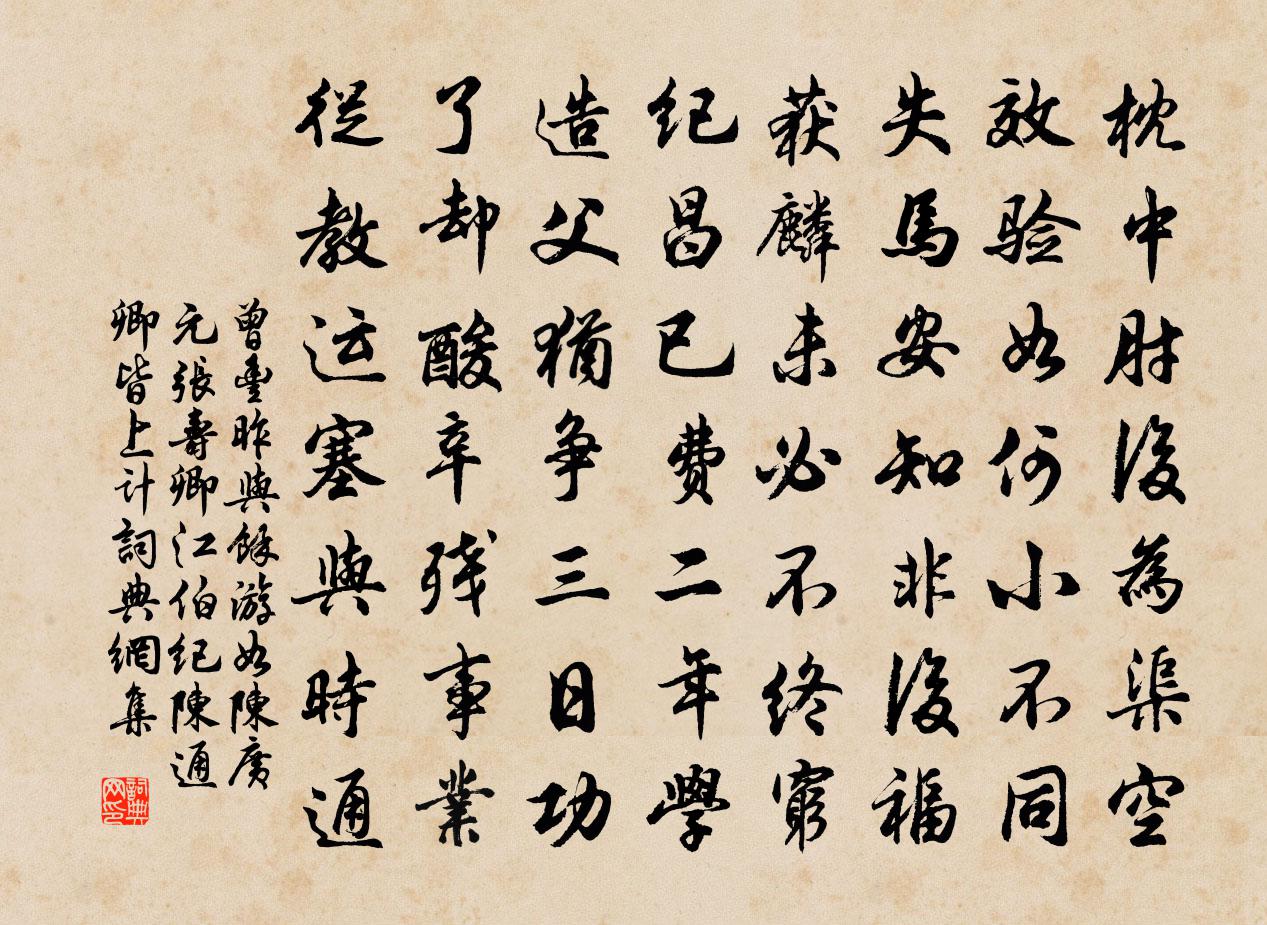 枕中肘後為渠空
效验如何小不同
失馬安知非後福
获麟未必不終窮
纪昌已費二年學
造父猶争三日功
了却酸辛残事業
從教运塞與時通
曾豊昨與餘游如陳廣
元張壽卿江伯纪陳通
卿皆上计詞典網集
詞典
网印